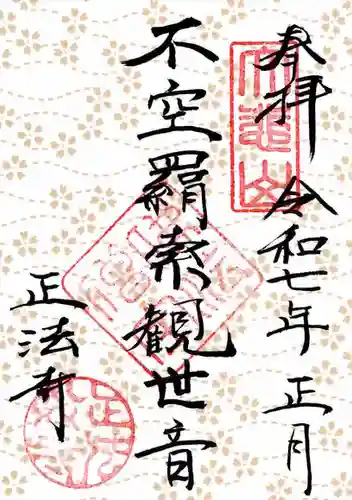 奉拝 令和七年 正月
不空羂索観世音
正法寺